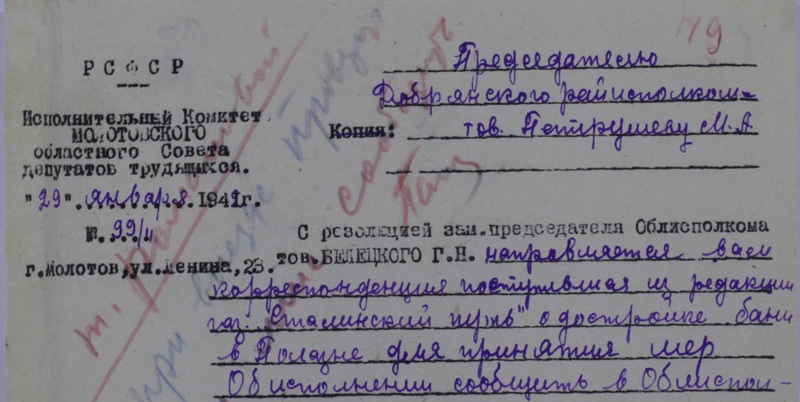 79
РСФСР
Исполнительный Комитет
МОЛОТОВСКОГО
областного Совета
депутатов трудящихся.
"29". января. 1942г.
№. 99/и
г.Молотов, ул.Ленина, 23.
Председателю
Добрянского райисполкома
Копия: тов. Петрушеву М.А
С резолюцией зам.председателя Облисполкома
тов.БЕЛЕЦКОГО Г.Н. направляется вам
корреспонденция поступившая из редакции
газ. "Сталинский путь" о достройке бани
в Полазне для принятия мер
Об исполнении сообщить в Облиспол-
т.
при
сообщить